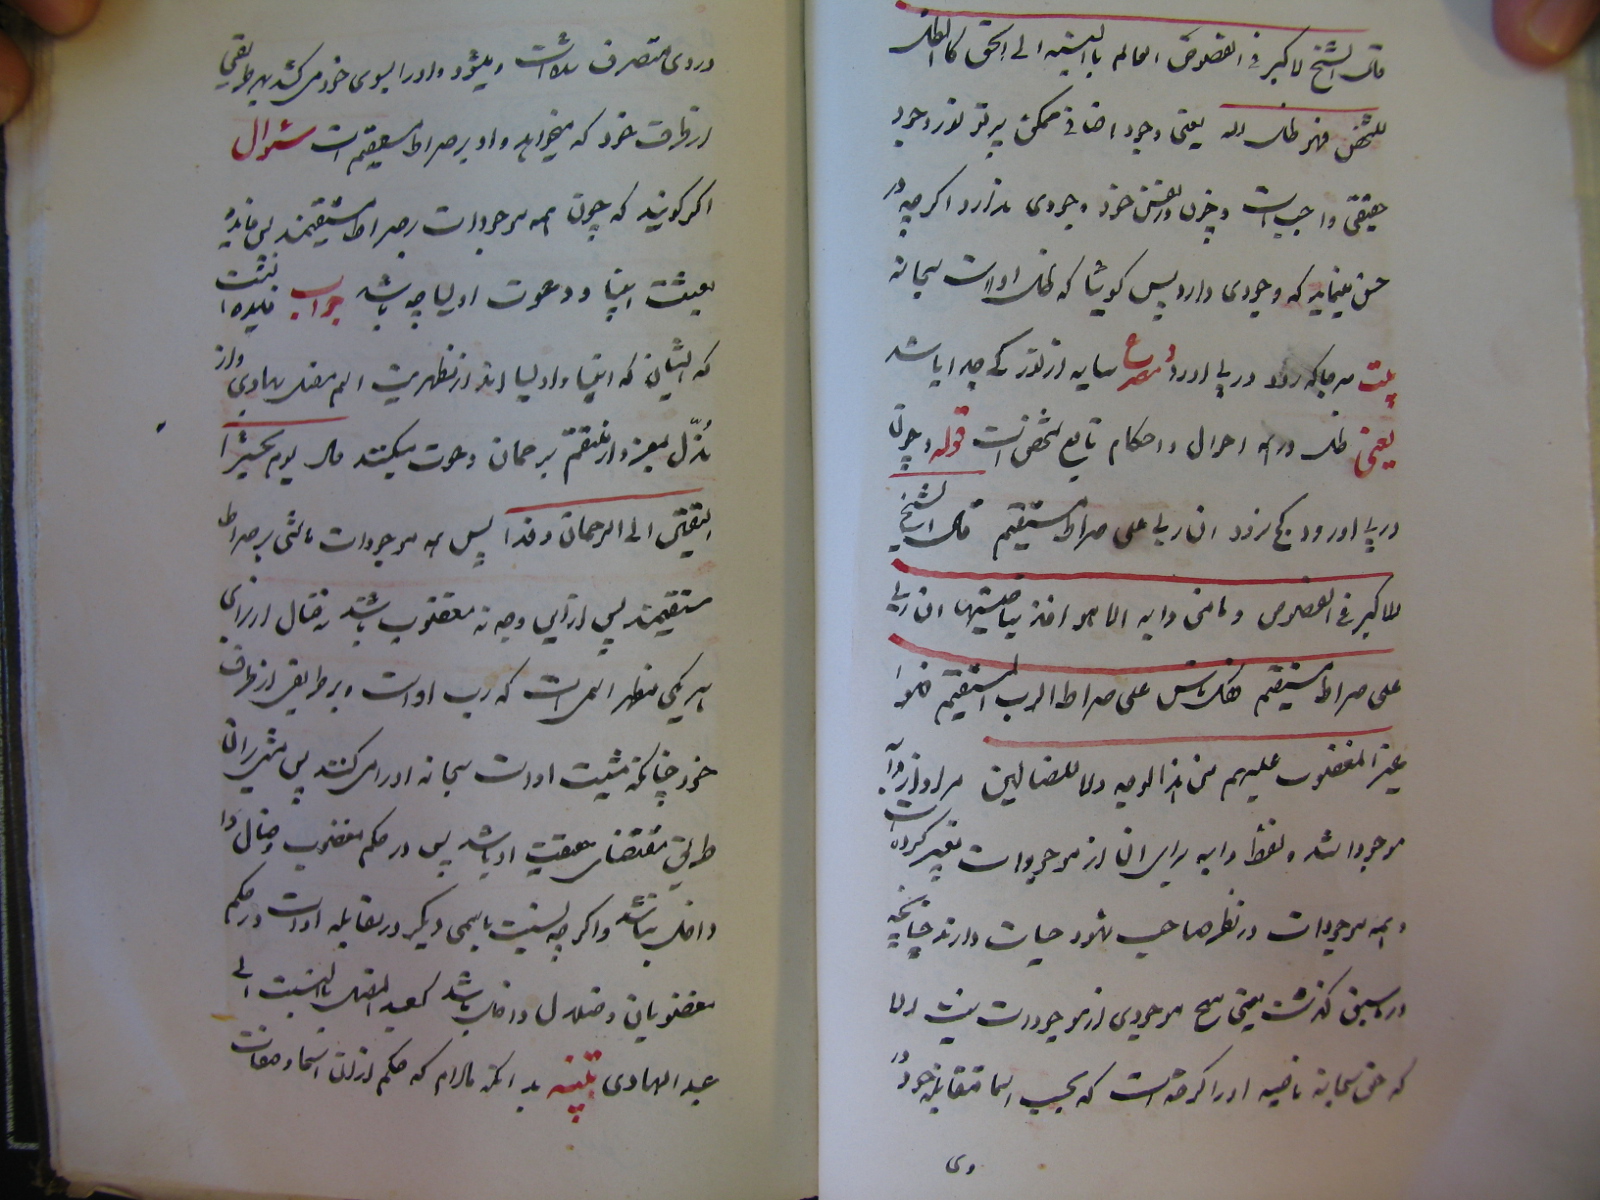 قال الشیخ الاکبر فی الفصوص العالم بالنسبه الی الحق کالظل
للشخص فهو ظل الله یعنی وجود اضافی ممکن پرتو نور وجود
حقیقی واجب است و چون در نفس خود وجودی ندارد اکرچه در
حس مینماید که وجودی دارد پس کوئیا که ظل اوست سبحانه
بیت هر جا که رود در پی او رود مصرع سایه از نور کی جدا باشد
یعنی ظل در همه احوال و احکام تابع شخص است قوله و چون
در پی او رود کج نرود ان ربی علی صراط مستقیم قال الشیخ
الاکبر فی الفصوص و ما من دابه الا هو اخذ بناصیتها ان ربی
علی صراط مستقیم فکل ماش علی صراط الرب المستقیم فهو
غیر المغضوب علیهم من هذا الوجه ولا للضالین مراد از دابه
موجود باشد و لفظ دابه برای ان از موجودات تعبیر کرده است
و همه موجودات در نظر صاحب شهود حیات دارند چنانچه
در سبق کذشت یعنی هیچ موجودی از موجودات نیست الا
که حق سبحانه ناصیه او را کرفته است که بحسب اسما متقابله خود در
وی
در وی متصرف است و میشود و او را بسوی خود می کشد بهر طریقی
از طرق خود که میخواهد و او بر صراط مستقیم است سئوال
اکر کویند که چون همه موجودات بر صراط مستقیمند پس فایده
بعثت انبیا و دعوت اولیا چه باشد جواب فایده انست
که ایشان که انبیا و اولیا اند از مظهریت اسم مضل بهادی و از
مذل بمعز و از منتقم برحمان دعوت میکنند قال یوم نحشر ا
لمتقین الی الرحمان وفدا پس همه موجودات ماشی بر صراط
مستقیمند پس ازین وجه نه مغضوب باشند نه ضال از برای
هر یکی مظهر اسمی است که رب اوست و بر طریقی از طرق
خود چنانکه مشیت اوست سبحانه او را می کشد پس مشی بران
طریق مقتضای حقیقت او باشد پس در حکم مغضوب و ضال
داخل نباشد و اکرچه نسبت باسمی دیکر در مقابله اوست در حکم
مغضوبان و ضلال داخل باشد کعبد المضل بالنسبت الی
عبد الهادی تنبیه بدانکه مادام که حکم از اسما و صفات